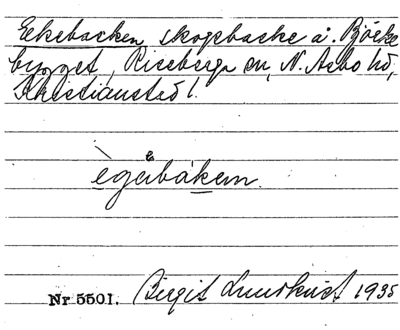 Ekebacken, skogsbacke å Björke
bygget, Riseberga sn, N. Åsbo hd,
Kristianstad l.
ègәbákәn.
Nr 5501. Birgit Lundkvist 1935